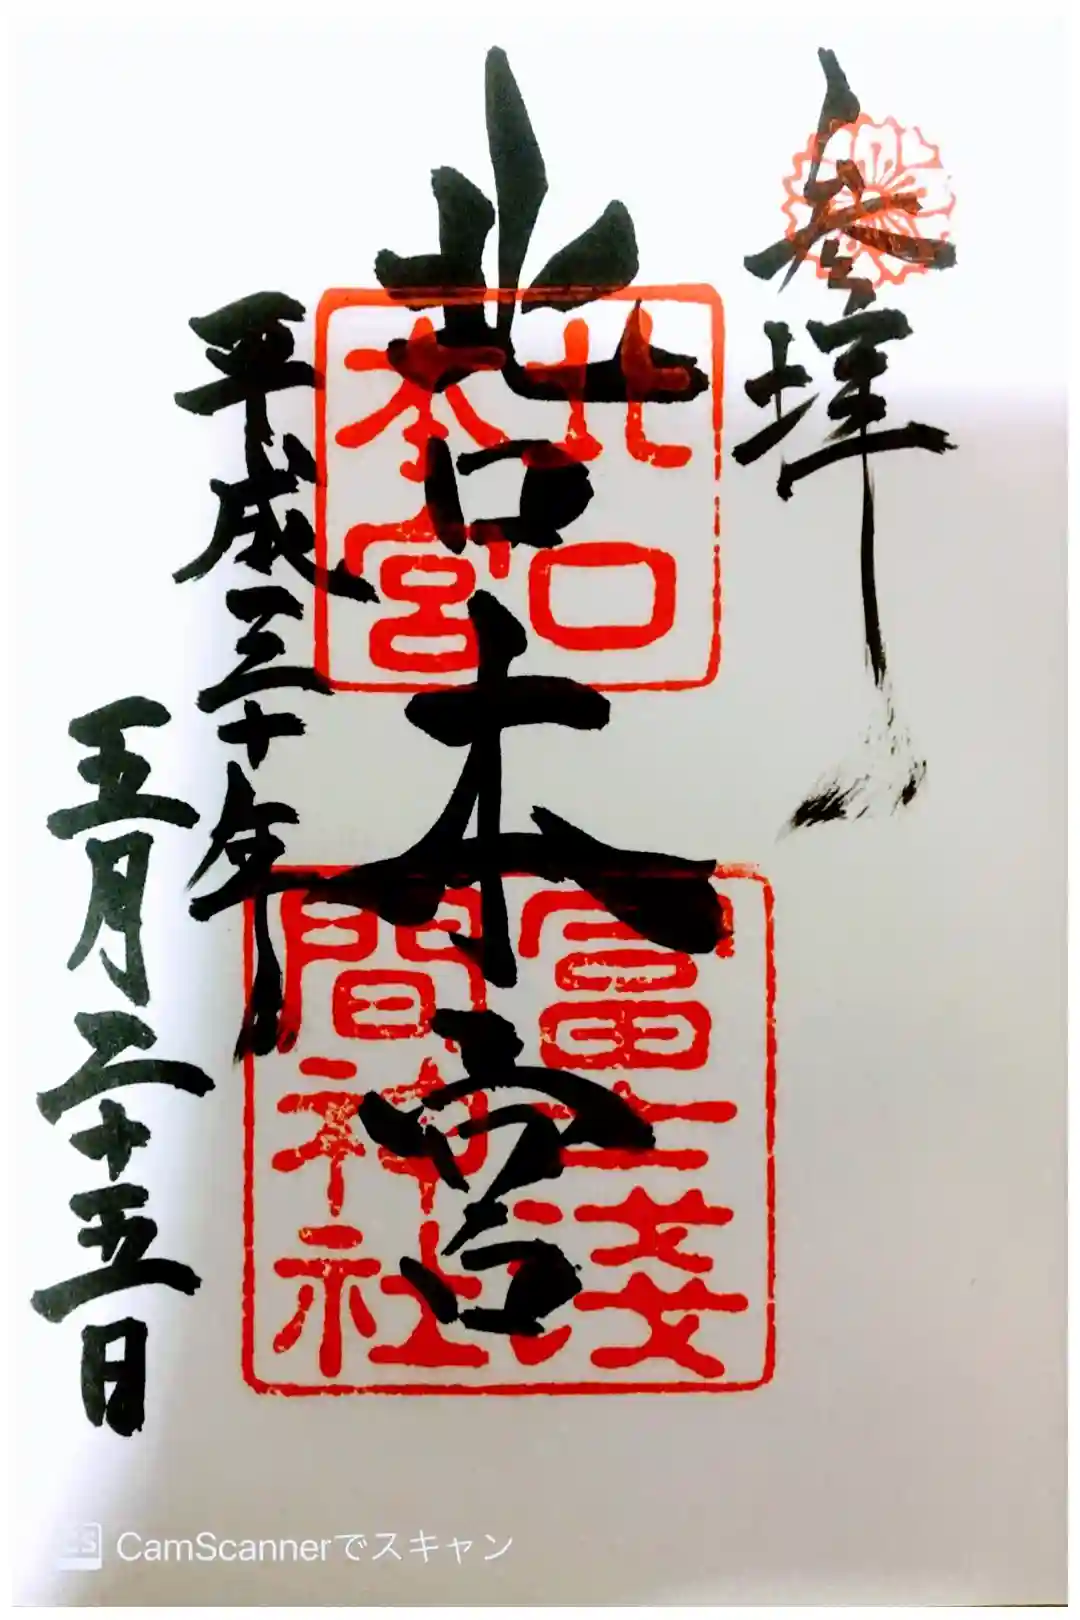 参拝
北口本宮
北口
本宮
冨士浅
間神社
平成三十年
五月二十五日
CamScannerでスキャン